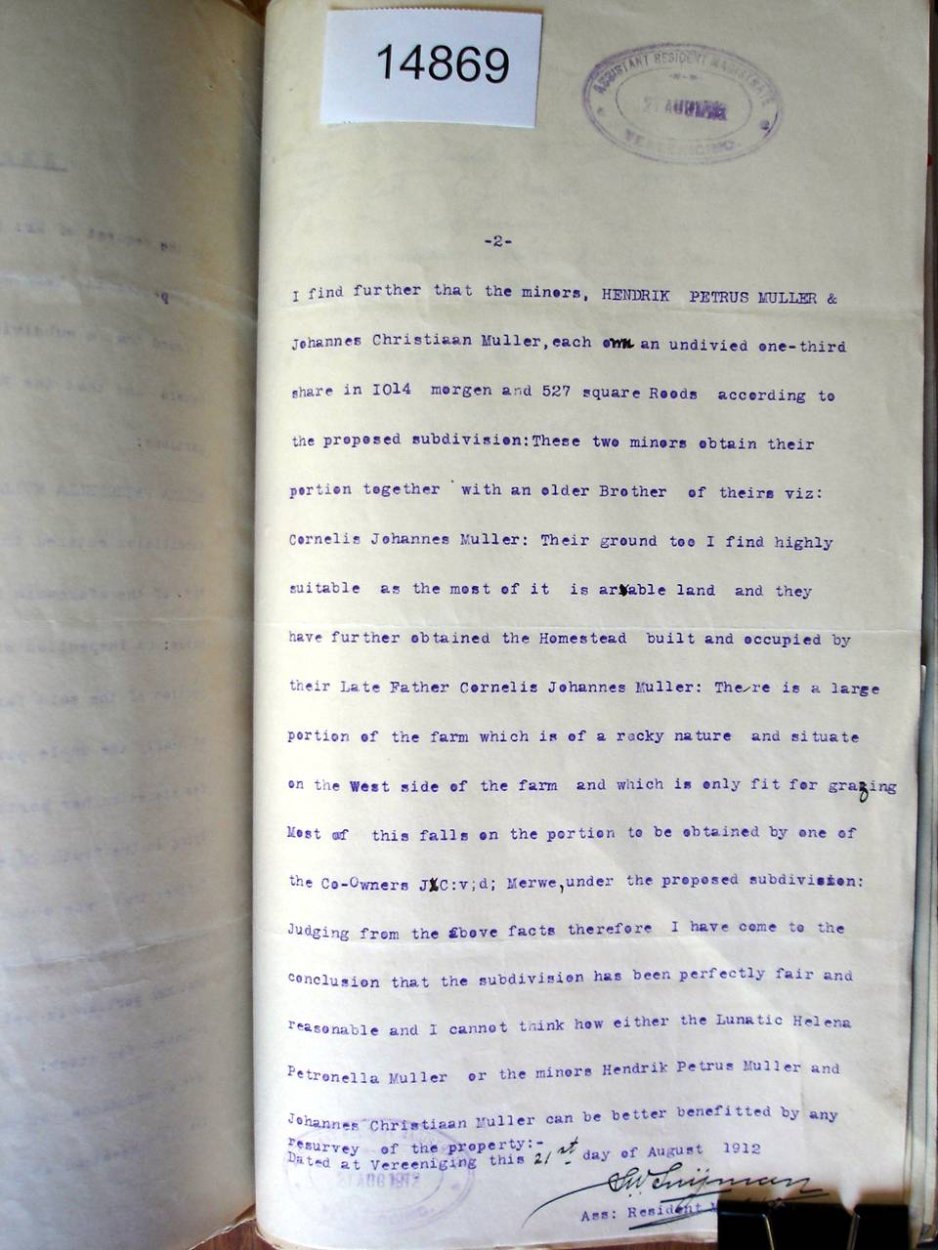 14869
ASSISTANT RESIDENT MAGISTRATE
21 AUG 1912
VEREENIGING.
-2-
I find further that the minors, HENDRIK PETRUS MULLER &
Johannes Christiaan Muller,each own an undivied one-third
share in IO14 morgen and 527 square Roods according to
the proposed subdivision:These two minors obtain their
portion together with an older Brother of theirs viz:
Cornelis Johannes Muller: Their ground too I find highly
suitable as the most of it is arable land and they
have further obtained the Homestead built and occupied by
their Late Father Cornelis Johannes Muller: There is a large
portion of the farm which is of a rocky nature and situate
on the West side of the farm and which is only fit for grazing
Most of this falls on the portion to be obtained by one of
the Co-Owners J C:v;d; Merwe,under the proposed subdivision:
Judging from the above facts therefore I have come to the
conclusion that the subdivision has been perfectly fair and
reasonable and I cannot think how either the Lunatic Helena
Petronella Muller or the minors Hendrik Petrus Muller and
Johannes Christiaan Muller can be better benefitted by any
resurvey of the property:-
Dated at Vereeniging this 21st day of August 1912
21 AUG 1912
Ass: Resident